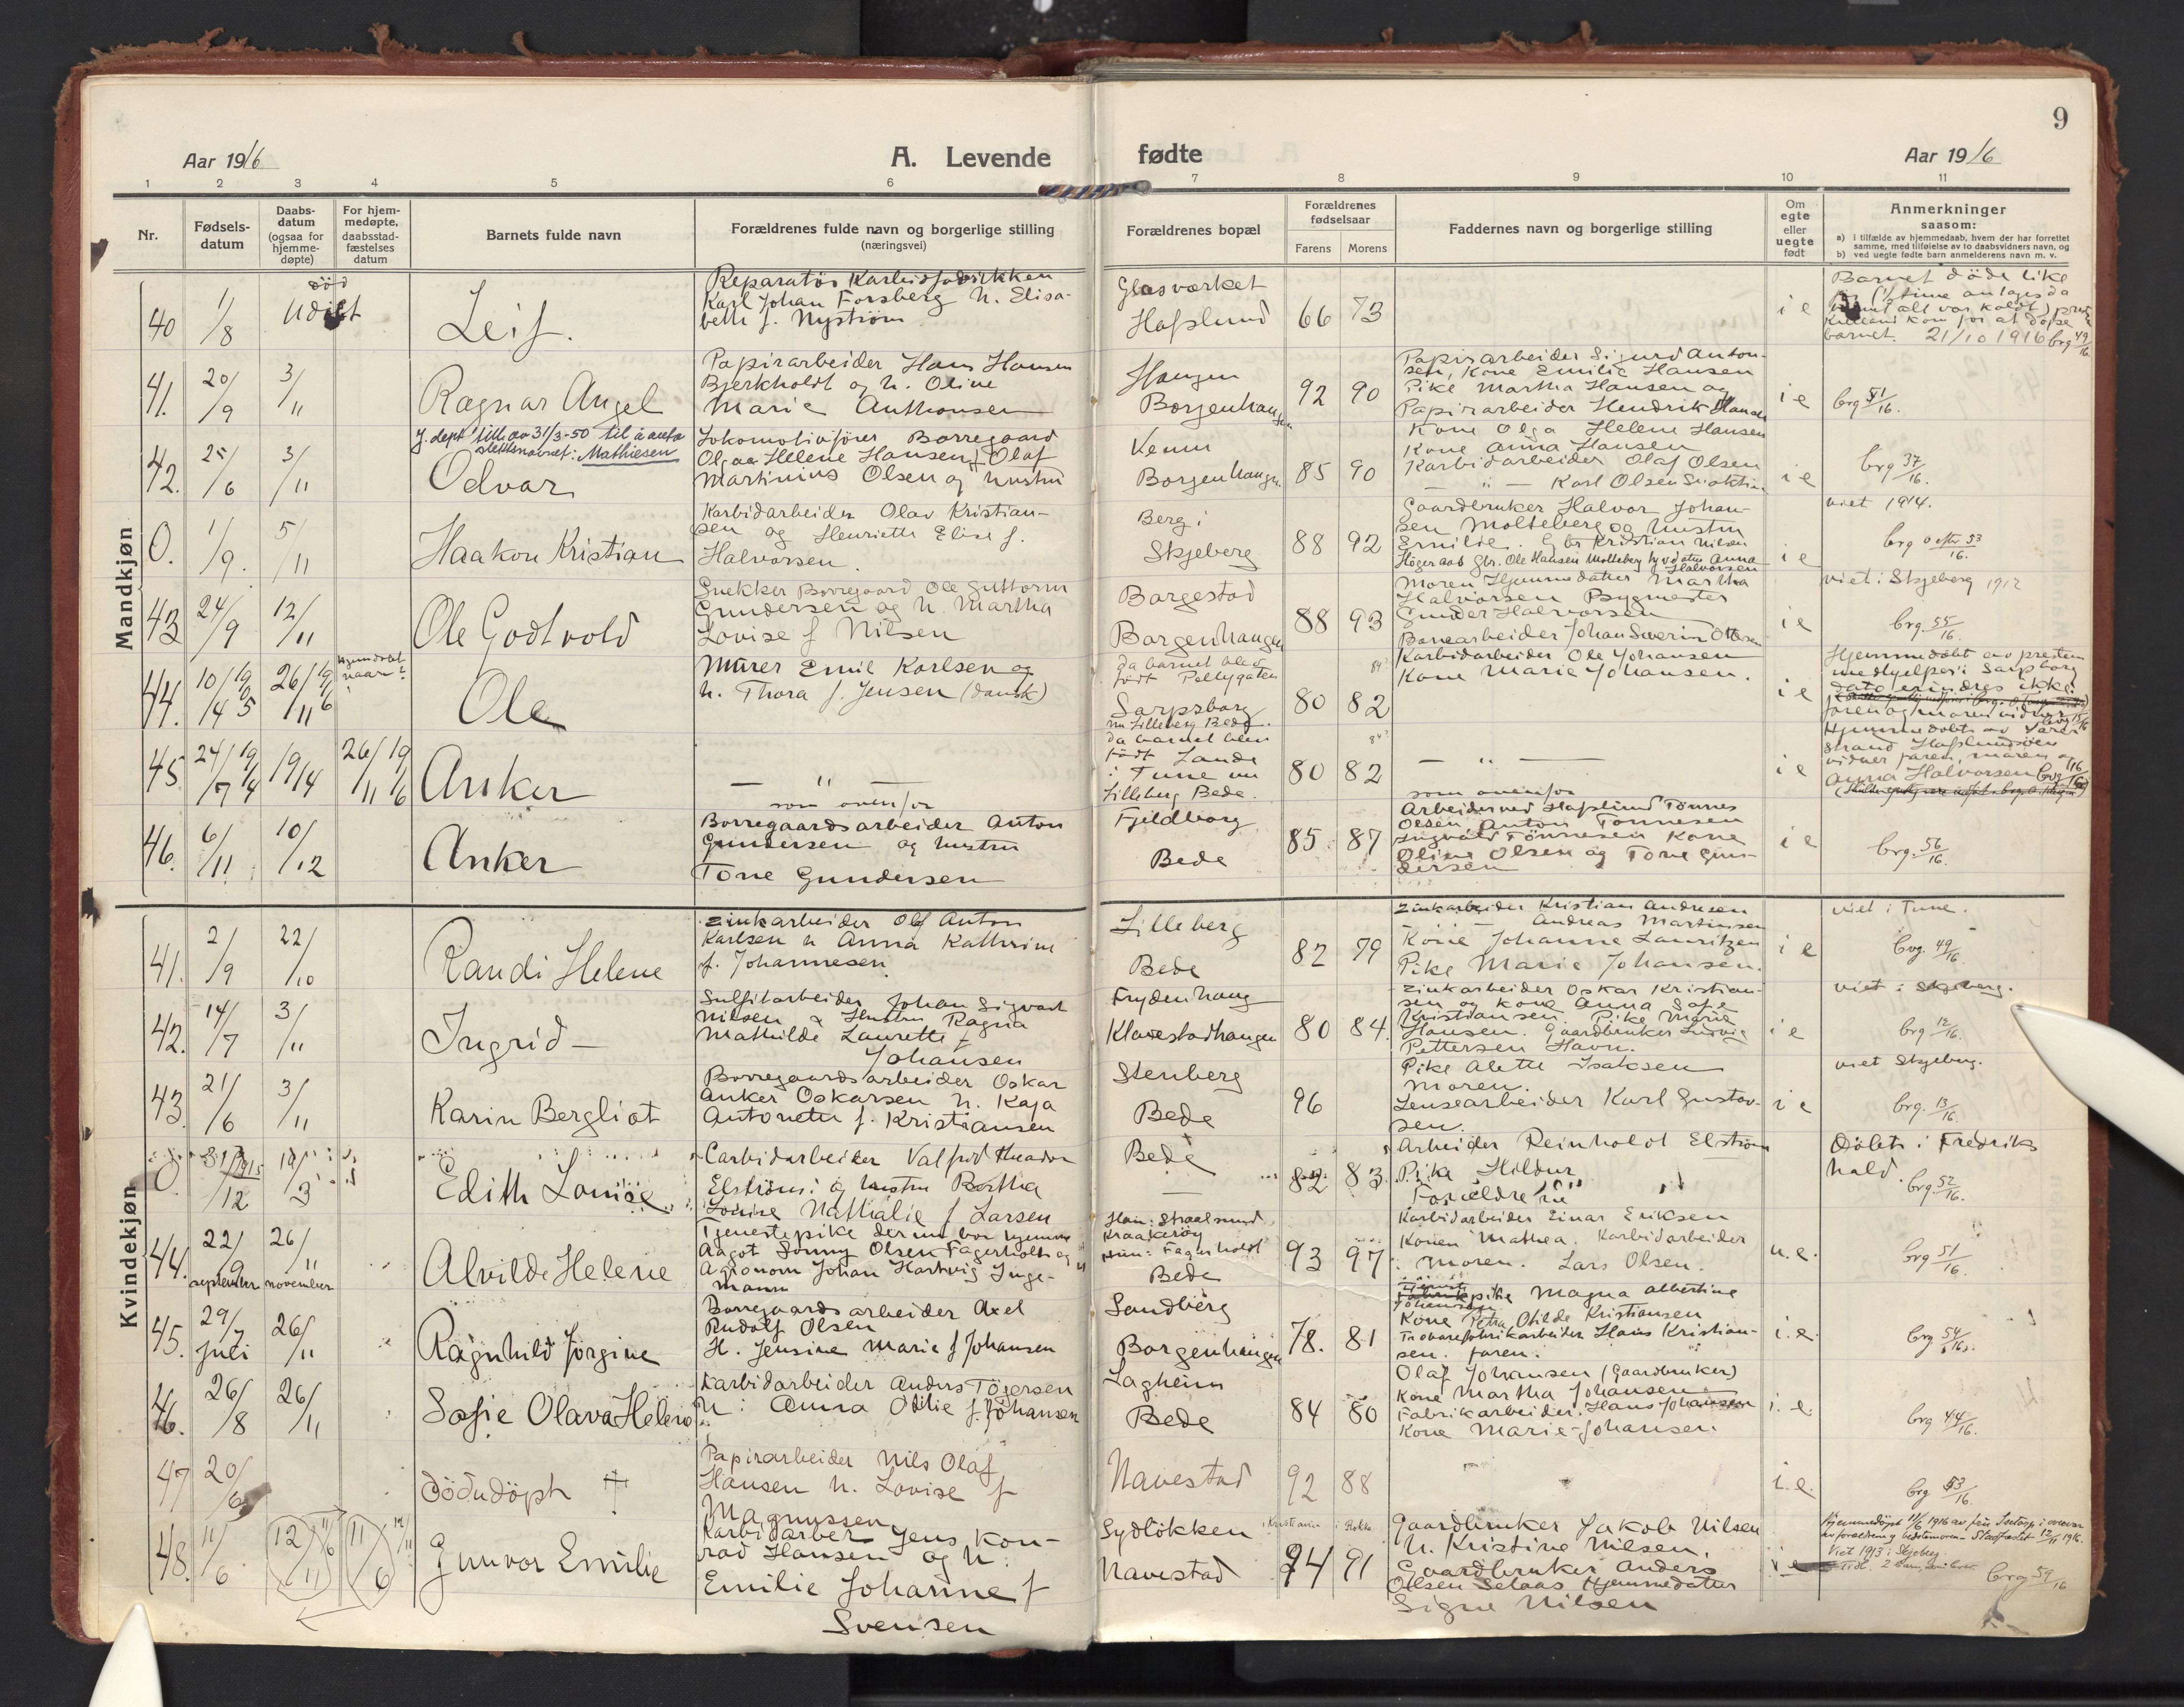 9
Aar 1916
A. Levende fødte
Aar 1916
1 2 3 4 5 6 7 8 9 10 11
Nr.
Fødsels-
datum
Daabs-
datum
(ogsaa for
hjemme-
døpte)
For hjem-
medøpte,
daabsstad-
fæstelses
datum
Barnets fulde navn
Forældrenes fulde navn og borgerlige stilling
(næringsvei)
Forældrenes bopæl
Forældrenes
fødselsaar
Farens Morens
Faddernes navn og borgerlige stilling
Om
egte
eller
uegte
født
Anmerkninger
saasom:
a) i tilfælde av hjemmedaab, hvem der har forrettet
samme, med tilføielse av to daabsvidners navn, og
b) ved uegte fødte barn anmelderens navn m. v.
Mandkjøn
40
1/8
død
udøbt
Leif.
Reparatør Karbidfabrikken
Karl Johan Forsberg h. Elisa-
beth f. Nystrøm
Glasværket
Hafslund
66 73
i e
Barnet døde like
barnet. 21/10 1916 brg 49/16.
41.
20/9
3/11
Ragnar Angel
Papirarbeider Hans Hansen
Bjerkholdt og h. Oline
Marie Anthonsen
Haugen
Borgenhaugen
92 90
Papirarbeider Sigurd Anton-
sen, Kone Emilie Hansen
Pike Martha Hansen og
Papirarbeider Hendrik Hansen
i e
brg 51/16.
42.
25/6
3/11
J. dept till av 31/3-50 til å anta
slektsnavnet: Mathiesen
Odvar
Lokomotivfører Borregaard
Olga Helene Hansen f Olaf
Martinius Olsen og hustru
Venm
Borgenhaugen
85 90
Kone Olga Helene Hansen
Kone Anna Hansen
Karbidarbeider Olaf Olsen
— " — Karl Olsen
i e
brg 37/16.
0.
1/9.
5/11
Haakon Kristian
Karbidarbeider Olav Kristian-
sen og Henriette Elise f.
Halvorsen.
Berg i
Skjeberg
88 92
Gaardbruker Halvor Johan-
sen Molteberg og hustru
Emilie. Gbr Kristian Nilsen
Høgeraas Gbr. Ole Hansen Molteberg hj.vd.atter Anna
Halvorsen
i e
viet 1914.
brg 0 efter 53/16.
43
24/9
12/11
Ole Godtvold
Snekker Borregaard Ole Guttorm
Gundersen og h. Martha
Lovise f Nilsen
Borgestad
Borgenhaugen
88 93
Moren Hjemmedatter Martha
Halvorsen Bygmester
Gunder Halvorsen
Banearbeider Johan Severin Ottesen
i e
viet i Skjeberg 1912
brg. 55/16.
44.
10/14 1905
26/11 1916
Hjemdøbt
naar?
Ole
Murer Emil Karlsen og
h. Thora f. Jensen (dansk)
da barnet blev
født Pellygaten
Sarpsborg
nu Lilleberg Bede.
80 82
84?
Karbidarbeider Ole Johansen
Kone Marie Johansen.
i e
Hjemmedøbt av presten
medhjelper i Sarpsborg
dato erindres ikke
faren og moren vidner
45
24/7 1914
1914
26/11 1916
Anker
— " —
som ovenfor
da barnet blev
født Lande
i Tune nu
Lilleberg Bede.
80 82
84?
— " —
som ovenfor
i e
Hjemmedøbt av Søren
Strand Hafslundsøen
vidner faren, moren og
Anna Halvorsen
46.
6/11
10/12
Anker
Borregaardsarbeider Anton
Gundersen og hustru
Tone Gundersen
Fjeldborg
Bede
85 87
Arbeider ved Hafslund Tønnes
Olsen Anton Tønnesen
Ingvald Tønnesen Kone
Oline Olsen og Tone Gun-
dersen
i e
brg. 56/16.
Kvindekjøn
41.
2/9
22/10
Randi Helene
Zinkarbeider Olaf Anton
Karlsen h Anna Kathrine
f. Johannesen
Lilleberg
Bede
82 79
Zinkarbeider Kristian Andresen
— Andreas Martinsen
Kone Johanne Lauritzen
Pike Marie Johansen.
i e
viet i Tune.
brg. 49/16.
42.
14/7
3/11
Ingrid —
Sulfitarbeider Johan Sigvart
Nilsen & Hustru Ragna
Mathilde Laurette f
Johansen
Frydenhaug
Klavestadhaugen
80 84.
Zinkarbeider Oskar Kristian-
sen og kone Anna Sofie
Kristiansen. Pike Marie
Hansen. Gaardbruker Ludvig
Pettersen Havn.
i e
viet i Skjeberg.
brg 12/16.
43.
21/6
3/11
Karin Bergliot
Borregaardsarbeider Oskar
Anker Oskarsen h. Kaja
Antonette f. Kristiansen
Stenberg
Bede
96
Pike Alette Isaksen
Moren.
Lensearbeider Karl Gustav-
sen.
i e
viet Skjeberg.
brg. 13/16.
0
31/12 1915
19/3
Edith Louise
Carbidarbeider Valfrid Theador
Elstrøm og hustru Bertha
Lovise Nathalie f Larsen
Bede
82 83
Arbeider Reinholdt Elstrøm
Pike Hildur "
Forældrene
Døbt i Fredriks
hald.
brg. 52/16.
44.
22/9
september
26/11
november
Alvilde Helene
Tjenestepike derimu bor hjemme
Aagot Sonny Olsen Fagerholdt og
Agronom Johan Hartvig Inge-
mann
Han: Straalsund
Kraakerøy
Hun: Fagerholdt
Bede
93 97
Karbidarbeider Einar Eriksen
Konen Mathea. Karbidarbeider
Moren. Lars Olsen.
u. e.
brg 51/16.
45.
29/7
juli
26/11
Ragnhild Jørgine
Borregaardsarbeider Axel
Rudolf Olsen
H. Jensine Marie f Johansen
Sandberg
Borgenhaugen
78. 81
pike Magna Albertine
Johansen
Kone Petra Otilde Kristiansen
Trævarefabrikarbeider Hans Kristian-
sen. faren.
i. e.
brg 54/16.
46.
26/8
26/11
Sofie Olava Helene
Karbidarbeider Anders Tøgersen
h: Anna Otilie f. Johansen
Lagheim
Bede
84 80
Olaf Johansen (Gaardbruker)
Kone Martha Johansen
Fabrikarbeider. Hans Johansen
Kone Marie Johansen.
i. e.
brg 44/16.
47
20/6
dödudöpt †
Papirarbeider Nils Olaf
Hansen h. Lovise f
Magnussen
Navestad
92 88
i. e.
brg 53/16.
48.
11/6
12/11
11/6
Gunvor Emilie
Karbidarber Jens Kon-
rad Hansen og h.
Emilie Johanne f
Svensen
Sydløkken
Navestad
i Kristiania i Rokke
94 91
Gaardbruker Jakob Nilsen
h. Kristine Nilsen.
Gaardbruker Anders
Olsen Selaas Hjemmedatter
Signe Nilsen
i e
Hjemmedøpt 11/6 1916 av
av forældre og bedstemoren - Stadfæstet 12/11 1916.
Viet 1913 i Skjeberg
brg 59/16